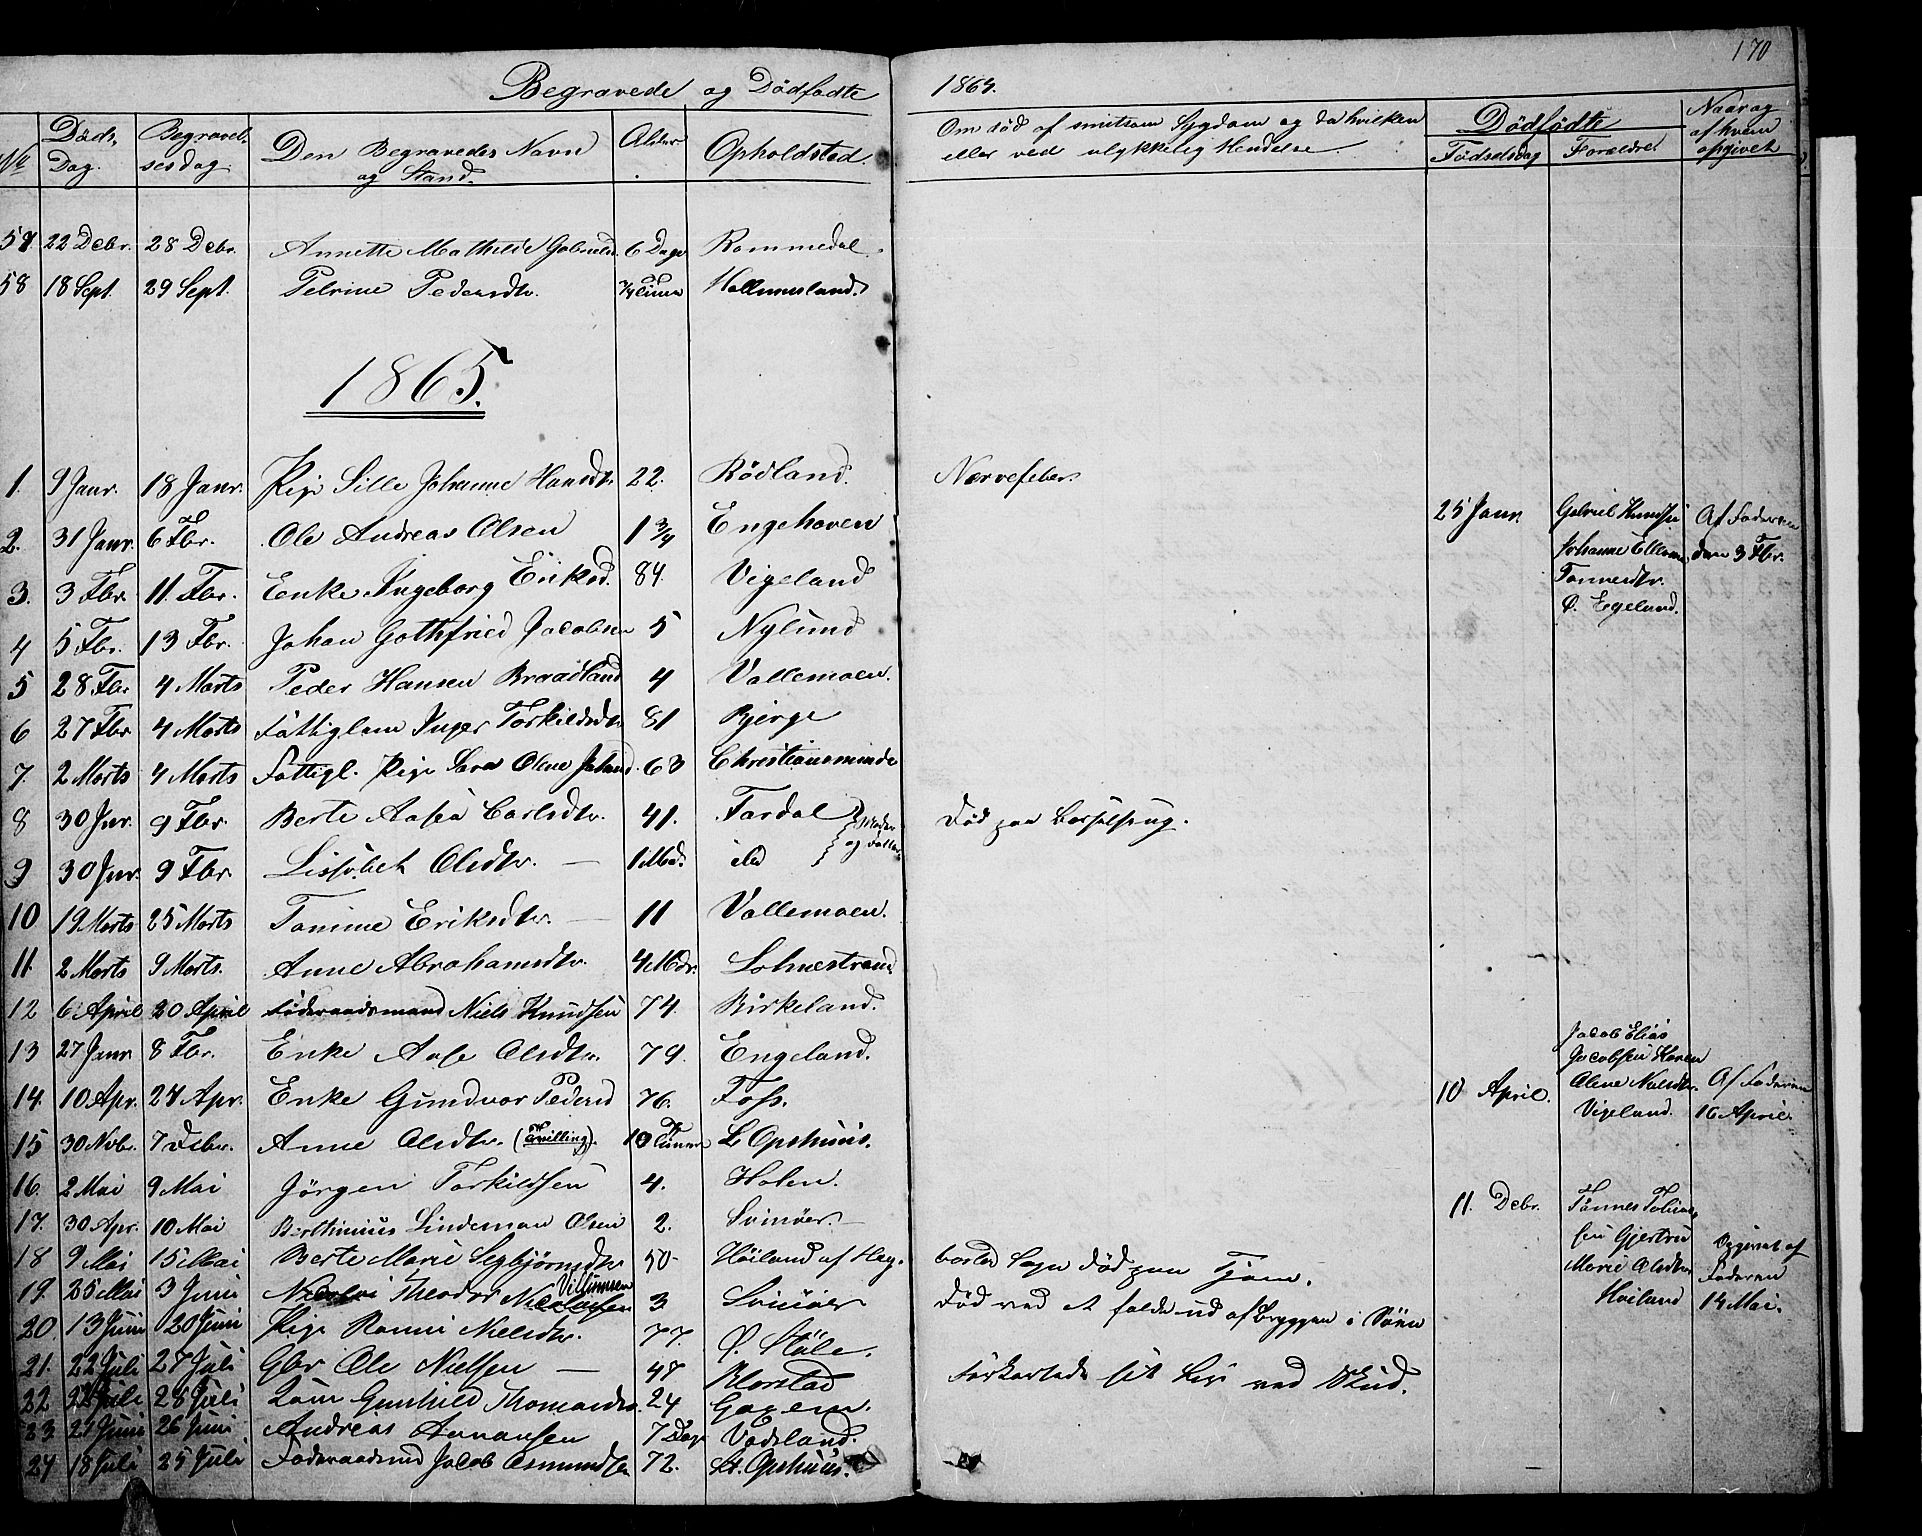 170
Begravede og Dödfødte 1864.
No Døds-Dag. Begravelsesdag Den Begravedes Navn og Stand. Alder Opholdsted Om död af smitsom Sygdom og da hvilken eller ved ulykkelig Hendelse. Dödfödte Födselsdag Forældre Naar og af hvem opgivet
57 22 Debr. 28 Debr. Annette Mathilde 6 Dage Rommedal.
58 18 Sept. 29 Sept. Petrine Pedersdtr. 3/4 Time
1865.
1. 9 Janr. 18 Janr. Pige Sille Johanne Hansdtr 22. Rödland. Nervefeber.
2. 31 Janr. 6 Fbr. Ole Andreas Olsen 1 3/4 Engehaven
25 Janr. Gabriel Johanne Tønnesdtr. Ø. Egeland. Af Faderen den 3 Fbr.
3. 3 Fbr. 11. Fbr. Enke Ingeborg Eriksd. 84. Vigeland
4 5 Fbr. 13 Fbr. Johan Gothfried Jacobsen 5 Nylund
5 28 Fbr 4 Marts Peder Hansen Braadland 4 Vallemoen.
6 27 Fbr 4 Marts Fattiglem Inger Torkildsdtr 81 Bjerge
7. 2 Marts 4 Marts Fattigl. Pige Sara Olene 63 Christiansminde
8 30 Jnr. 9 Fbr. Berte Aasea Carlsdtr. 41. Fardal Moder og Datter Död paa Barselseng.
9 30 Jnr. 9 Fbr Lissabet Olsdtr. — 1 Md. do
10 19 Marts 25 Marts Tomine Eriksdtr. — 11 Vallemoen.
11. 2 Marts 9 Marts. Anne Abrahamsdtr. 4 Mdr.
12 6 April 20 April Föderaadsmand Niels Knudsen 74. Birkeland.
13 27 Janr 8 Fbr. Enke Aase Olsdtr. 79. Engeland.
14. 10 Apr. 24 Apr. Enke Gundvor Pedersd 76. Foss.
10 April. Jacob Elias Jacobsen Karen Olene Nielsdtr. Vigeland. Af Faderen 16 April.
15 30 Nobr. 7 Debr. Anne Olsdtr. (Tvilling). 10 Timer L. Opshuus.
16. 2 Mai 9 Mai Jörgen Torkildsen 4. Holen.
17. 30 Apr. 10 Mai Berthinius Lindeman Olsen 2. Svinöer. —
11. Debr. Tönnes Tobiassen Gjertrud Marie Olsdtr Høiland Opgivet af Faderen 14 Mai.
18 9 Mai 15 Mai Berte Marie Segbjörnsdtr 50 Höiland af Heg-bostad Sogn död paa
19. 25 Mai 3 Juni Nicolai Theodor Villumsen 3 Svinöer Död ved at falde ud af Bryggen i Söen
20 13 Juni 20 Juni Pige Ranni Nielsdtr. 77. Ø. Støle.
21. 22 Juli 27 Juli Gbr Ole Nielsen — 47 Blorstad Forkortede sit Liv ved Skud.
22 28 Juli Gunhild Thomasdtr. 24
23 21 Juni 26 Juni Andreas 7 Dage Vodsland.
24 18 Juli 25 Juli Foderaadsmd Jacob Asmundsen 72. St. Opshuus.